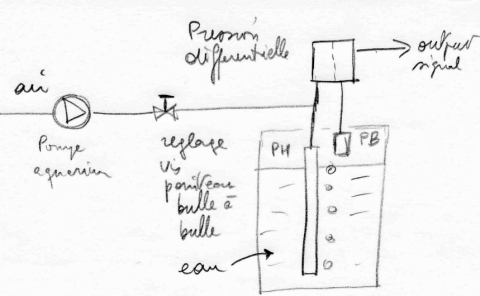 Pression
differentielle
output
signal
air
Pompe
aquarium
reglage
vis
bulle à
bulle
PH
PB
eau